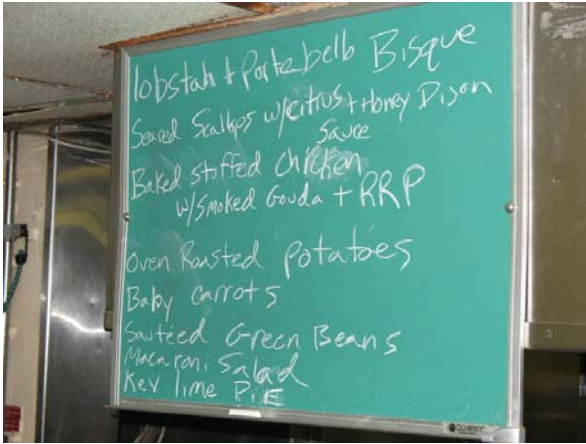 lobstah + Portebello Bisque
Seared Scallops w/citrus + Honey Dijon
Sauce
Baked Stoffed Chicken
w/Smoked Gouda + RRP
Oven Roasted Potatoes
Baby Carrots
Sautéed Green Beans
Macaroni Salad
Key lime PiE